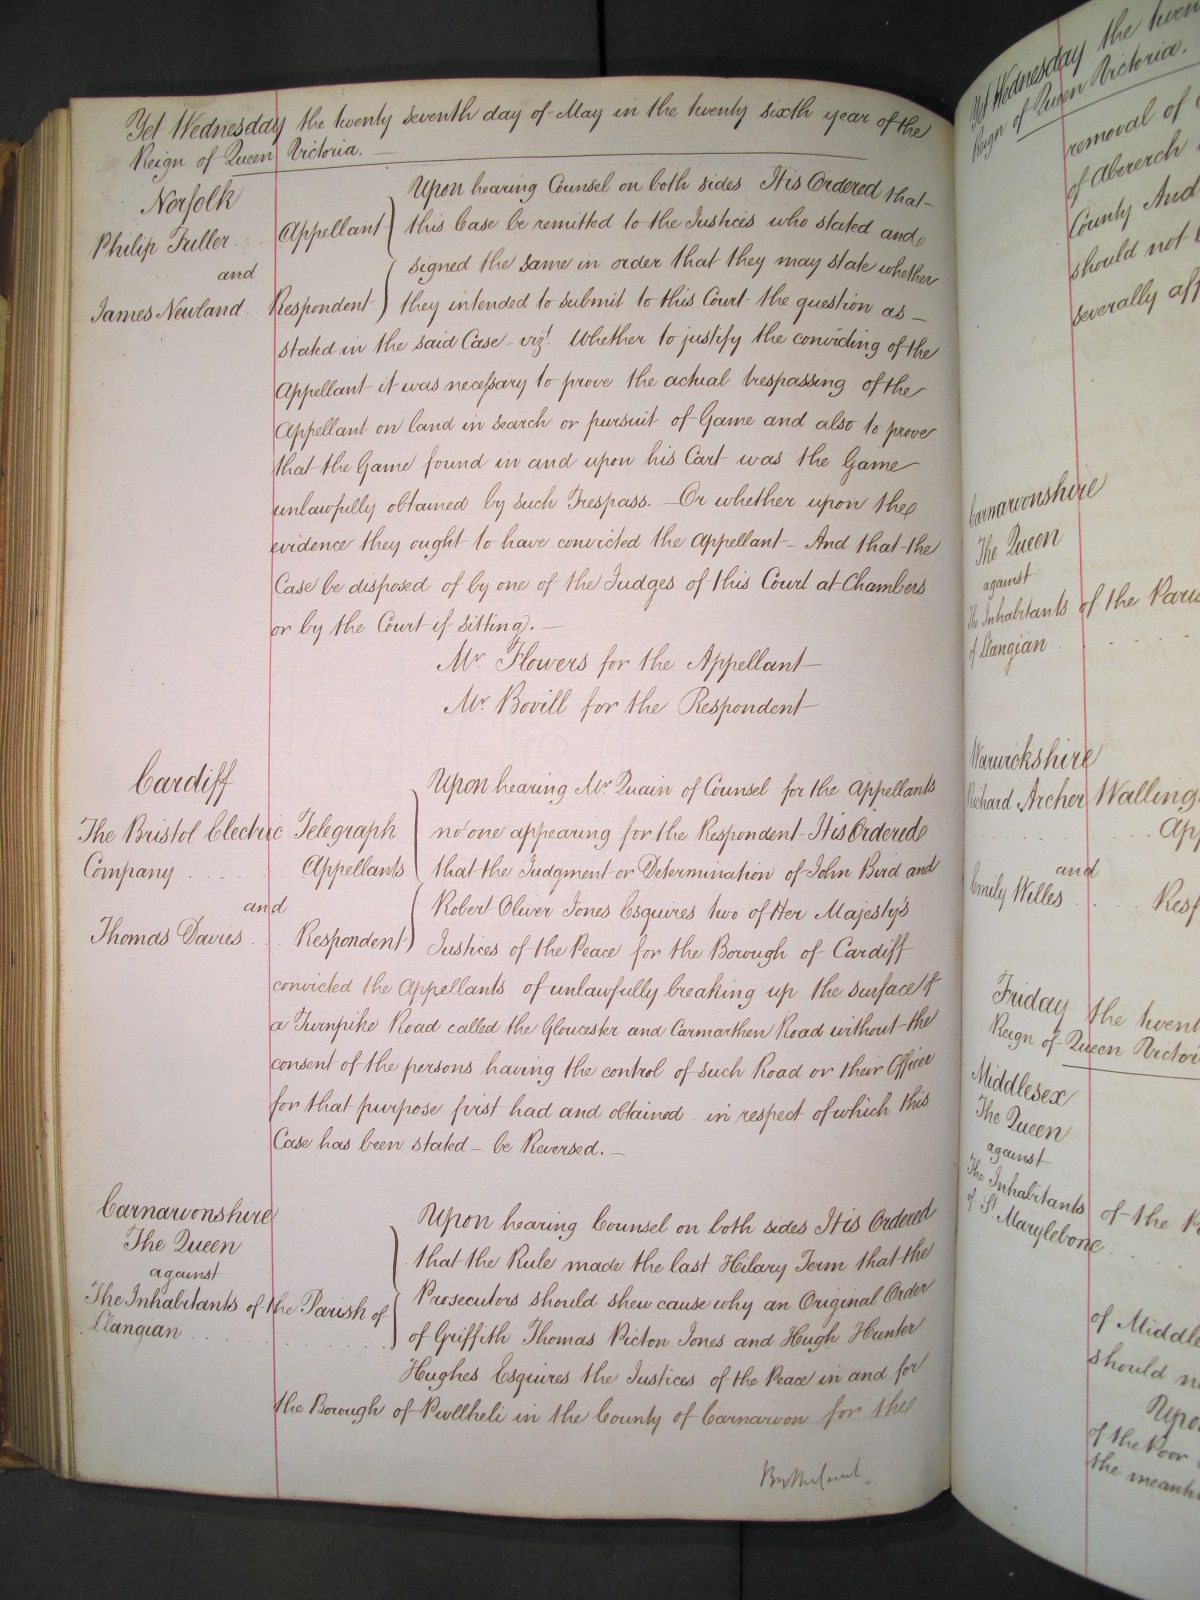 Yet Wednesday the twenty seventh day of May in the twenty sixth year of the
Reign of Queen Victoria. —
Norfolk
Philip Fuller Appellant
and
James Newland Respondent
Upon hearing Counsel on both sides It is Ordered that
this Case be remitted to the Justices who stated and
signed the same in order that they may state whether
they intended to submit to this Court the question as —
stated in the said Case – vizt. Whether to justify the convicting of the
Appellant it was necessary to prove the actual trespassing of the
Appellant on land in search or pursuit of Game and also to prove
that the Game found in and upon his Cart was the Game
unlawfully obtained by such Trespass. — Or whether upon the
evidence they ought to have convicted the Appellant – And that the
Case be disposed of by one of the Judges of this Court at Chambers
or by the Court if sitting. —
Mr. Flowers for the Appellant —
Mr. Bovill for the Respondent —
Cardiff
The Bristol Electric Telegraph
Company . . . . Appellants
and
Thomas Davies . . Respondent
Upon hearing Mr Quain of Counsel for the Appellants
no one appearing for the Respondent It is Ordered
that the Judgment or Determination of John Bird and
Robert Oliver Jones Esquires two of Her Majesty's
Justices of the Peace for the Borough of Cardiff
convicted the Appellants of unlawfully breaking up the surface of
a Turnpike Road called the Gloucester and Carmarthen Road without the
consent of the persons having the control of such Road or their Officer
for that purpose first had and obtained – in respect of which this
Case has been stated – be Reversed. —
Carnarvonshire
The Queen
against
The Inhabitants of the Parish of
Llangian . . .
Upon hearing Counsel on both sides It is Ordered
that the Rule made the last Hilary Term that the
Prosecutors should shew cause why an Original Order
of Griffith Thomas Picton Jones and Hugh Hunter
Hughes Esquires the Justices of the Peace in and for
the Borough of Pwllheli in the County of Carnarvon for the
By the Court.
Yet Wednesday the twen
Reign of Queen Victoria.
removal of
of Abererch
County And
should not
severally aff
Carnarvonshire
The Queen
against
The Inhabitants of the Paris
of Llangian
Warwickshire
Richard Archer Walling
App
and
Emily Willes . . . Resp
Friday the twent
Reign of Queen Victori
Middlesex
The Queen
against
The Inhabitants of the P
of St. Marylebone
of Middle
should n
Upon
of the Poor
the meanwh